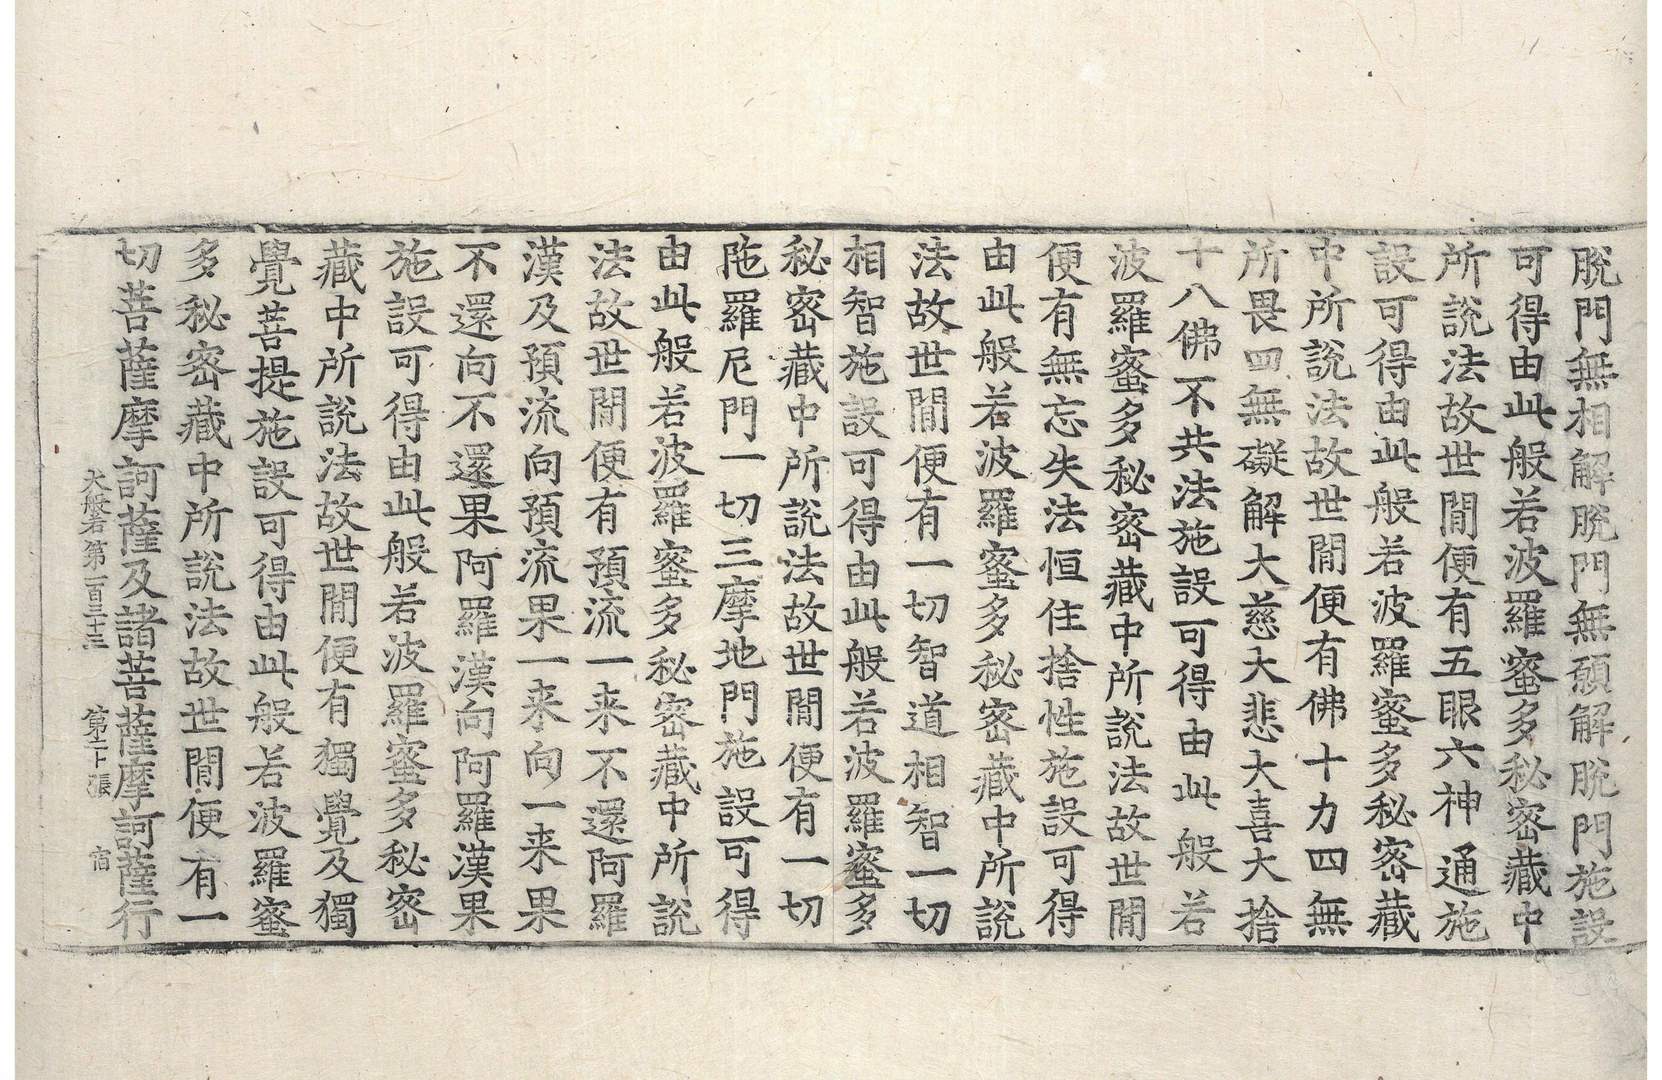 脫門無相解脫門無願解脫門施設
可得由此般若波羅蜜多秘密藏中
所說法故世閒便有五眼六神通施
設可得由此般若波羅蜜多秘密藏
中所說法故世閒便有佛十力四無
所畏四無礙解大慈大悲大喜大捨
十八佛不共法施設可得由此般若
波羅蜜多秘密藏中所說法故世閒
便有無忘失法恒住捨性施設可得
由此般若波羅蜜多秘密藏中所說
法故世閒便有一切智道相智一切
相智施設可得由此般若波羅蜜多
秘密藏中所說法故世閒便有一切
陁羅尼門一切三摩地門施設可得
由此般若波羅蜜多秘密藏中所說
法故世閒便有預流一来不還阿羅
漢及預流向預流果一来向一来果
不還向不還果阿羅漢向阿羅漢果
施設可得由此般若波羅蜜多秘密
藏中所說法故世閒便有獨覺及獨
覺菩提施設可得由此般若波羅蜜
多秘密藏中所說法故世閒便有一
切菩薩摩訶薩及諸菩薩摩訶薩行
大般若第一百三十三 第 張 宿